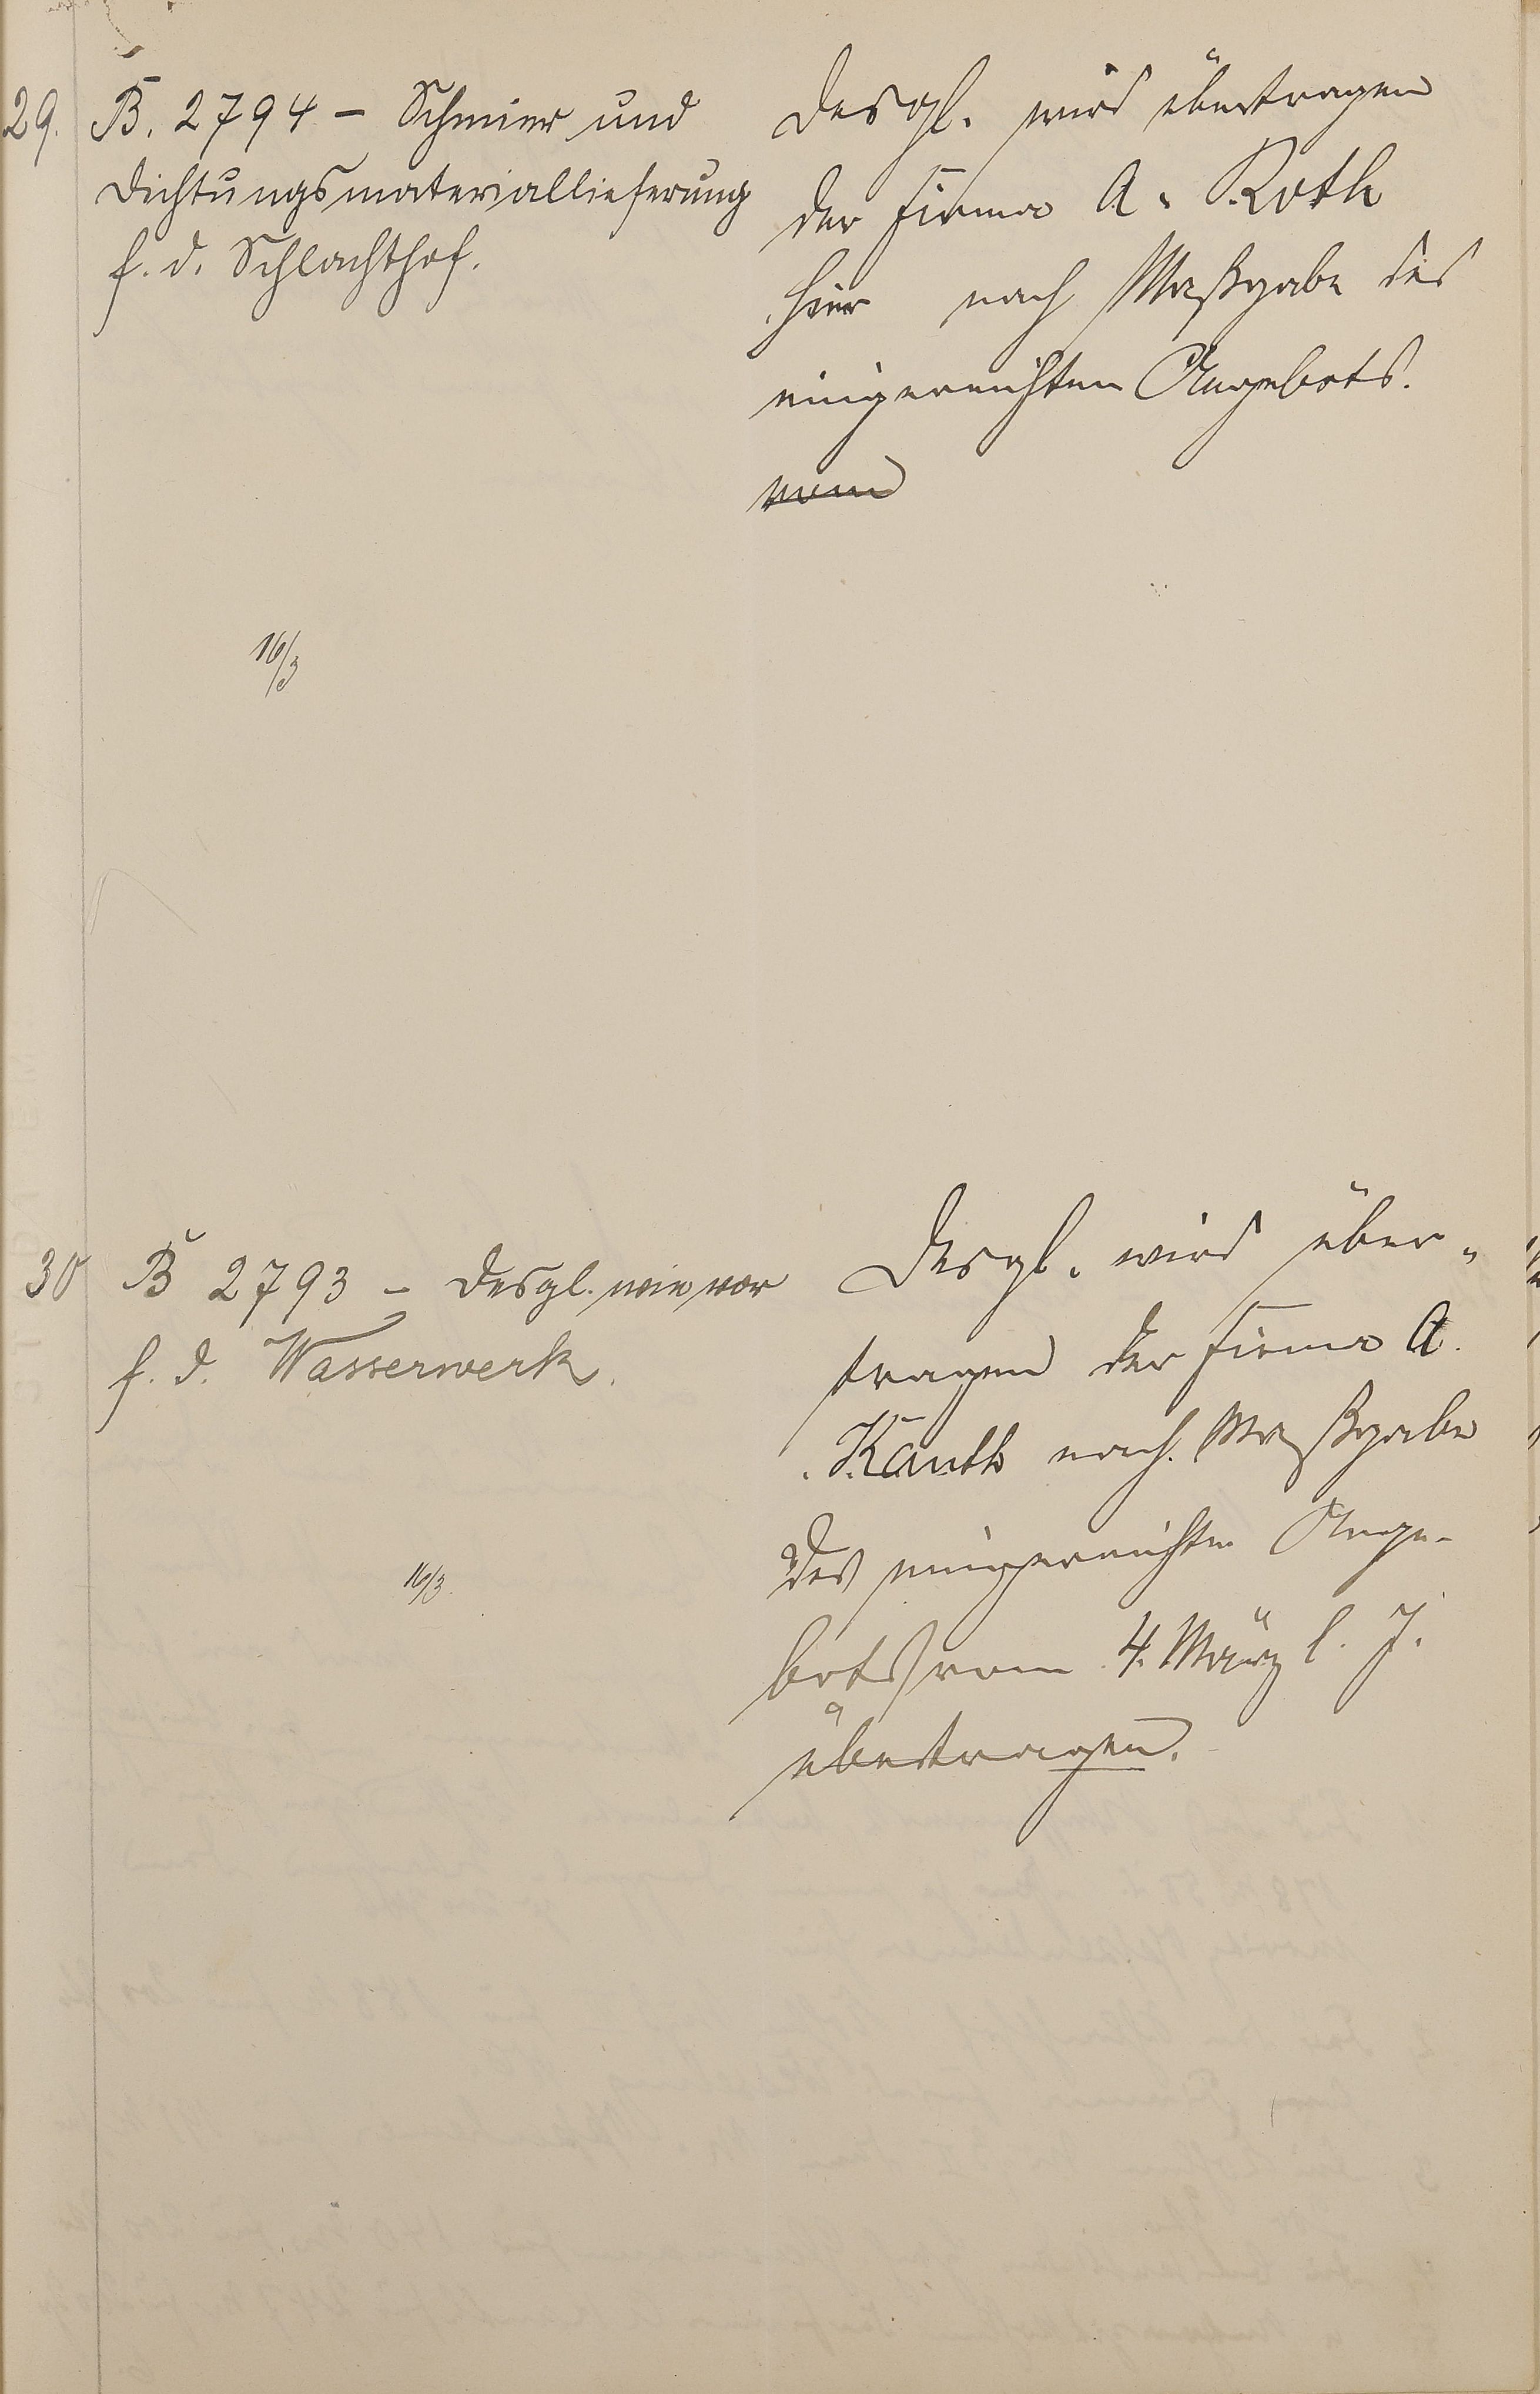 29.
B. 2794 - Schmier und
Dichtungsmateriallieferung
f. d. Schlachthof.
16/3
Desgl. wird übertragen
der Firma A. Roth
hier nach Maßgabe des
eingereichten Angebots.
vom
30
B 2793 - Desgl. wie vor
f. d. Wasserwerk.
16/3.
Desgl. wird über-
tragen der Firma A.
Kauth nach Maßgabe
des eingereichten Ange-
bots vom 4. März l. J.
übertragen.